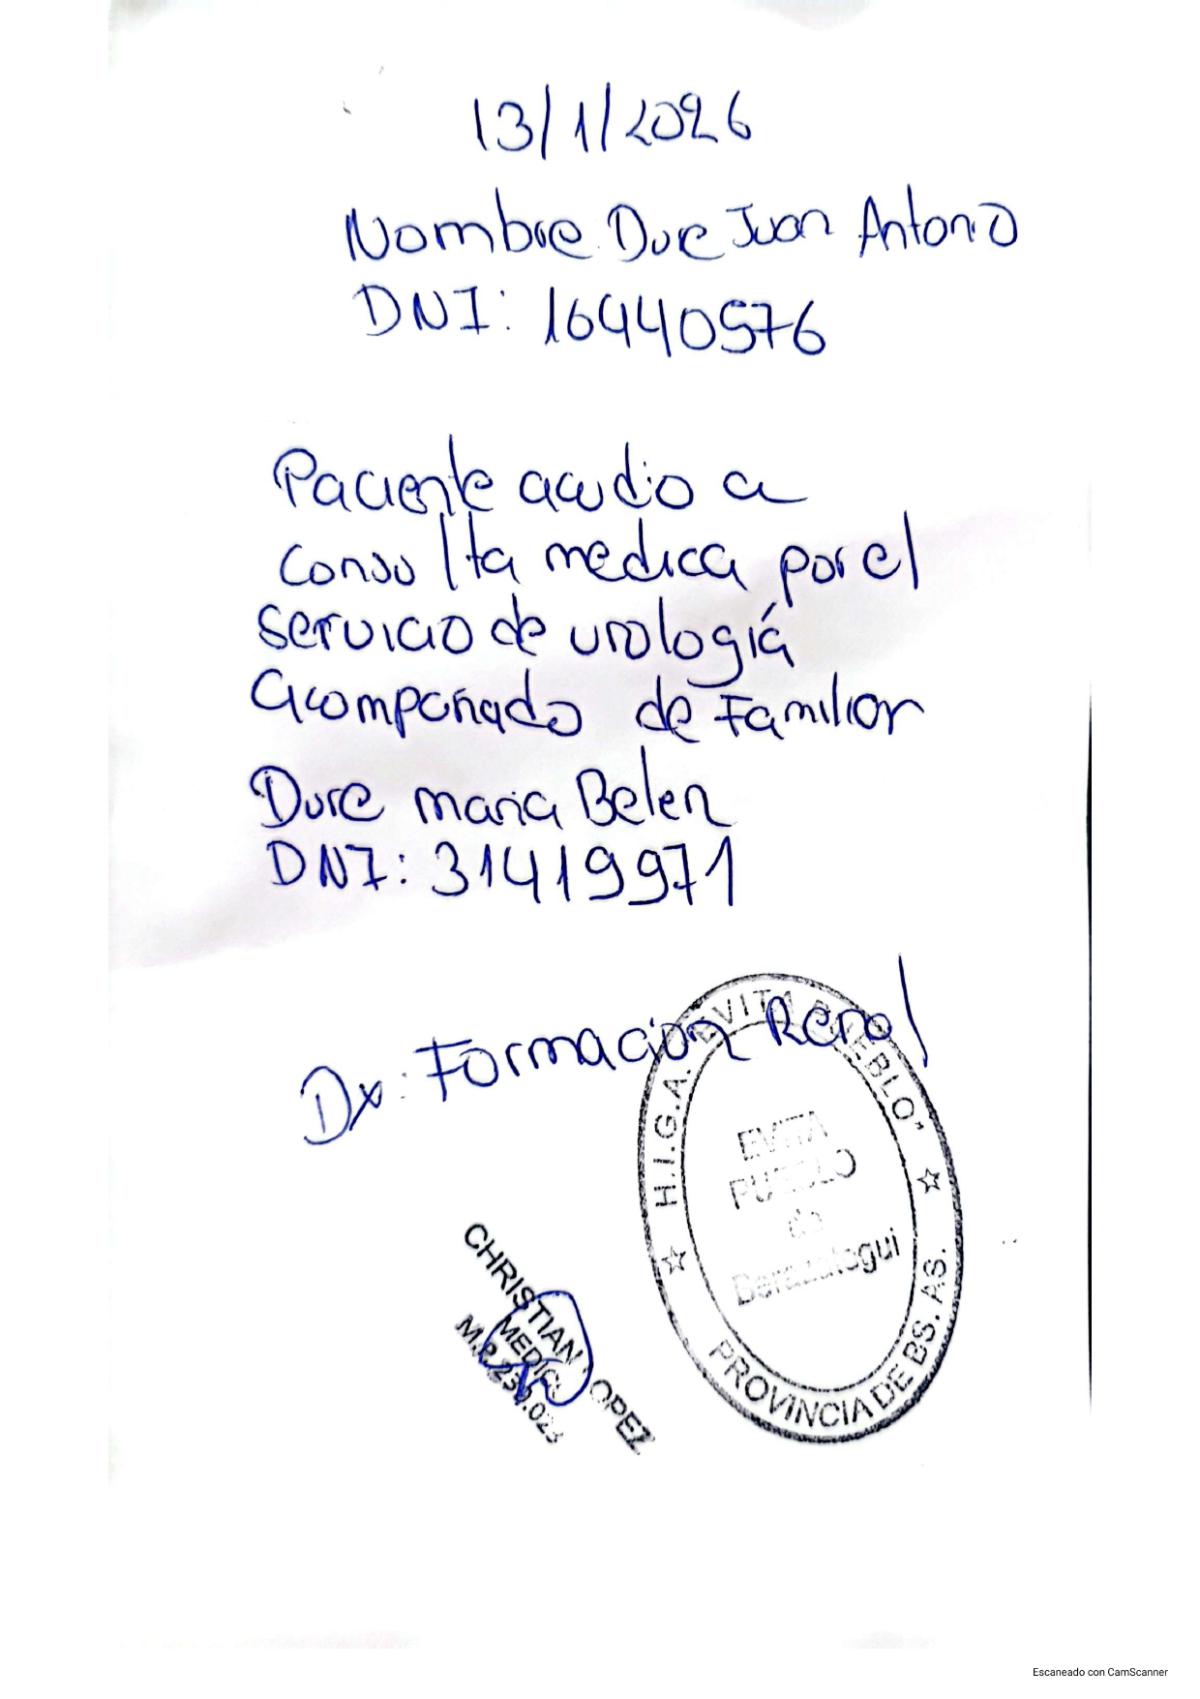 13/1/2026
Nombre Dure Juan Antonio
DNI: 16440576
Paciente acudio a
consulta medica por el
servicio de urologiá
acompañado de Familiar
Dure maria Belen
DNI: 31419971
Dx: Formacion Renal
H.I.G.A. "EVITA PUEBLO"
EVITA
PUEBLO
de
Berazategui
PROVINCIA DE BS. AS.
CHRISTIAN LOPEZ
MEDICO
M.P.
Escaneado con CamScanner